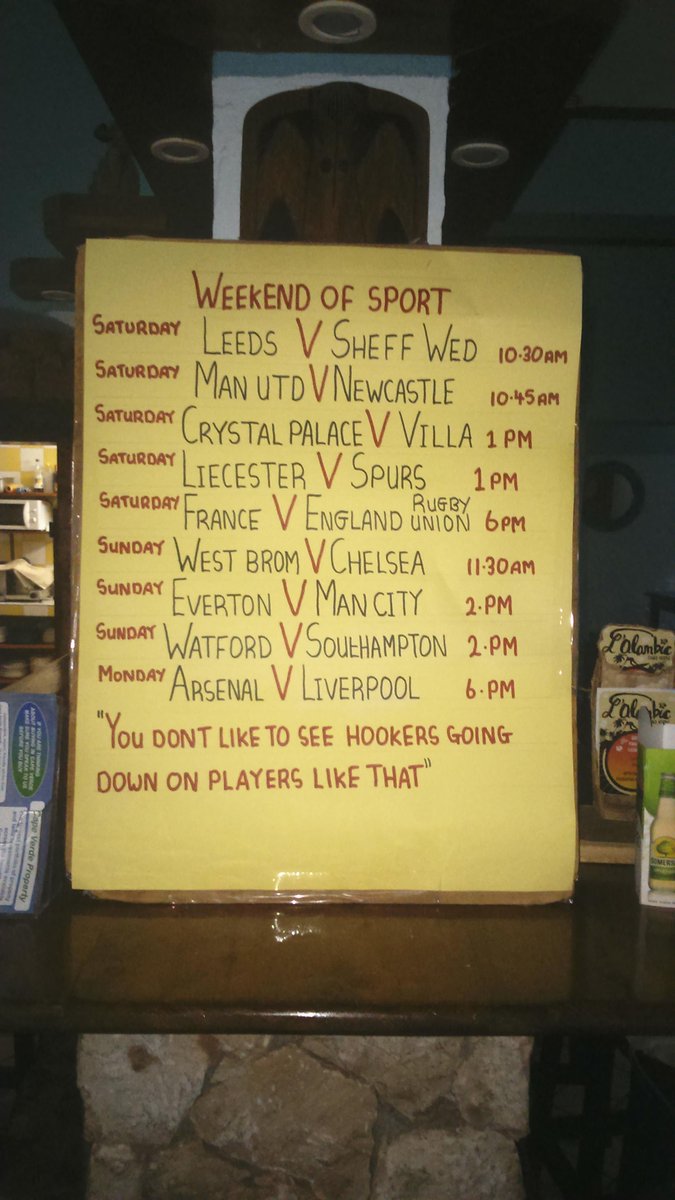 WEEKEND OF SPORT
SATURDAY LEEDS V SHEFF WED 10.30AM
SATURDAY MAN UTD V NEWCASTLE 10.45AM
SATURDAY CRYSTAL PALACE V VILLA 1PM
SATURDAY LIECESTER V SPURS 1PM
SATURDAY FRANCE V ENGLAND RUGBY UNION 6PM
SUNDAY WEST BROM V CHELSEA 11.30AM
SUNDAY EVERTON V MAN CITY 2.PM
SUNDAY WATFORD V SOUTHAMPTON 2.PM
MONDAY ARSENAL V LIVERPOOL 6.PM
"YOU DONT LIKE TO SEE HOOKERS GOING
DOWN ON PLAYERS LIKE THAT"
L'Alambic
Cape Verde Property